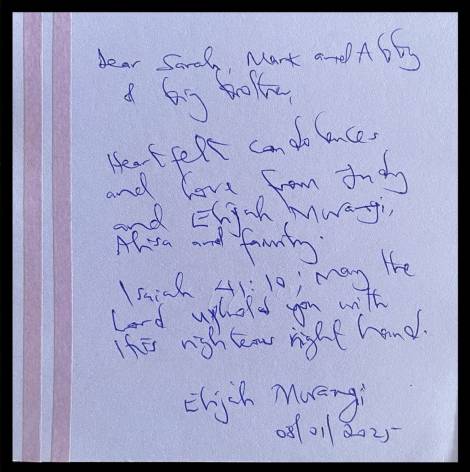 Dear Sarah, Mark and Abby
& big brother,
Heartfelt condolences
and love from Judy
and Elijah Mwangi,
Ahisa and family.
Isaiah 41:10; May the
Lord uphold you with
His righteous right hand.
Elijah Mwangi
08/01/2025